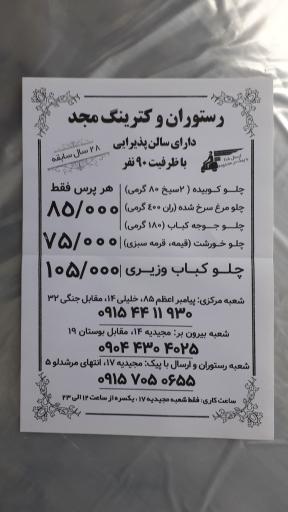 رستوران و کترینگ مجد
دارای سالن پذیرایی
با ظرفیت ۹۰ نفر
۲۸ سال سابقه
چلـو کوبیده ( ۲سیخ ۸۰ گرمی) هر پرس فقط
چلو مرغ سرخ شده (ران ۴۰۰ گرمی) ۸۵/۰۰۰
چلـو جـوجه کباب (۱۸۰ گرمی)
چلـو خورشت (قیمه، قرمه سبزی) ۷۵/۰۰۰
چلـو کباب وزیـری ۱۰۵/۰۰۰
شعبه مرکزی: پیامبر اعظم ۸۵، خلیلی ۱۴، مقابل جنگی ۳۲
۰۹۱۵ ۴۴ ۱۱ ۹۳۰
شعبه بیرون بر: مجیدیه ۱۴، مقابل بوستان ۱۹
۰۹۰۴ ۴۳۰ ۴۰۲۵
شعبه رستوران و ارسال با پیک: مجیدیه ۱۷، انتهای مرشدلو ۵
۰۹۱۵ ۷۰۵ ۰۶۵۵
ساعت کاری: فقط شعبه مجیدیه ۱۷ ، یکسره از ساعت ۱۲ الی ۲۳